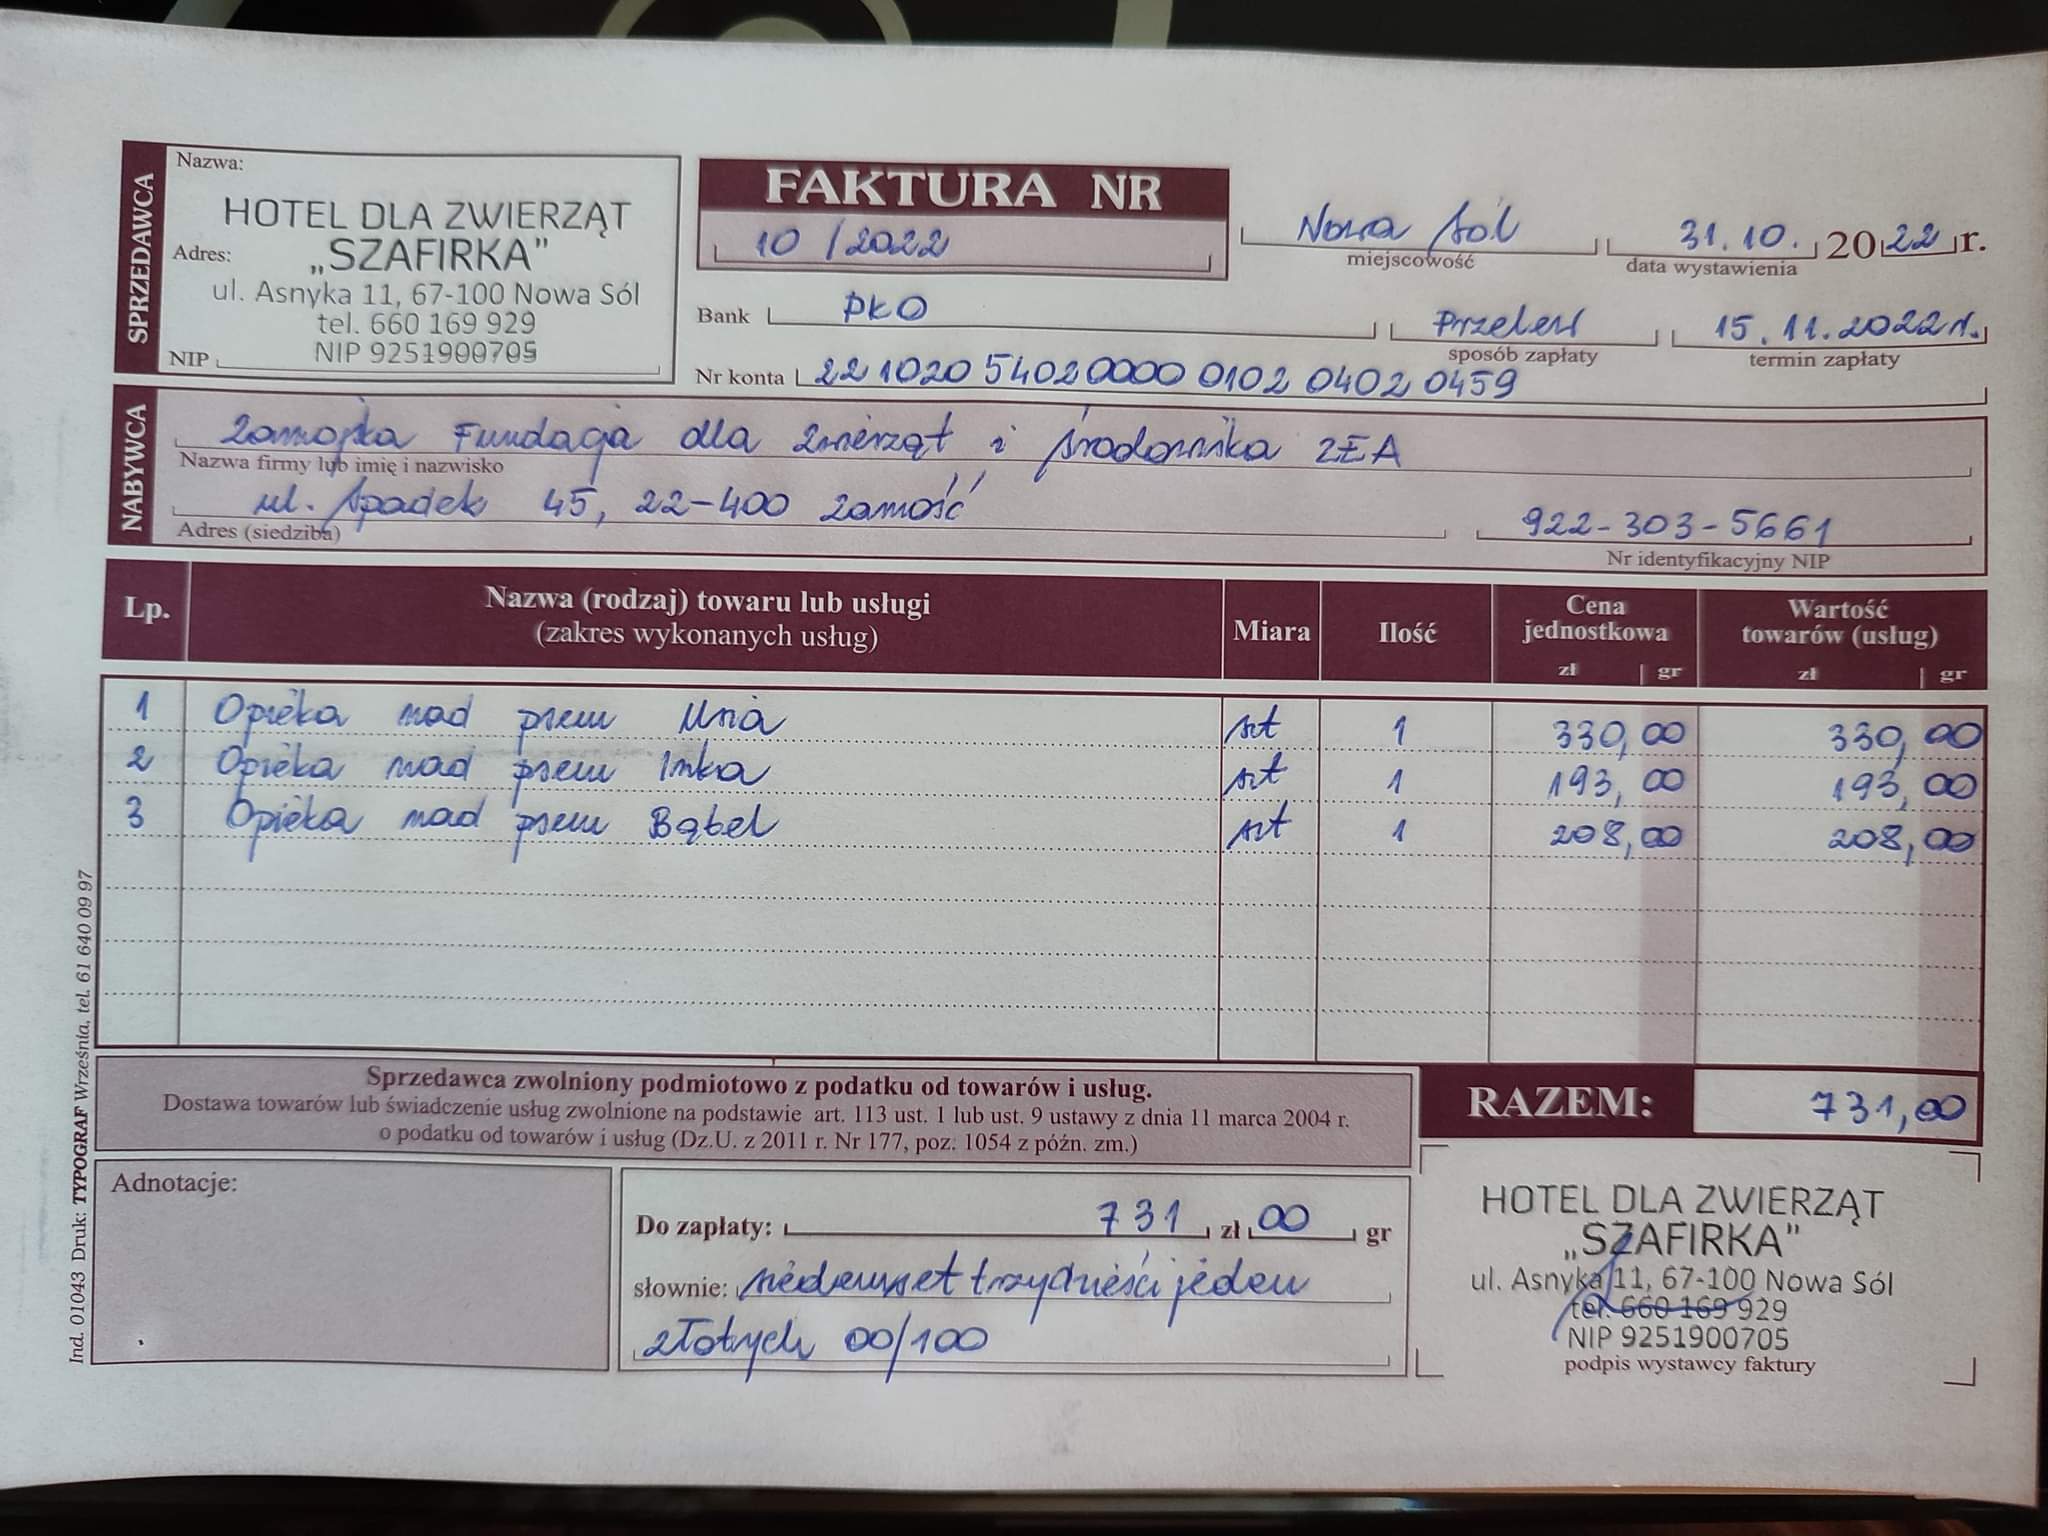 SPRZEDAWCA
Nazwa:
HOTEL DLA ZWIERZĄT
Adres: „SZAFIRKA”
ul. Asnyka 11, 67-100 Nowa Sól
tel. 660 169 929
NIP NIP 9251900705
FAKTURA NR
10/2022
Nowa Sól 31.10. 2022 r.
miejscowość data wystawienia
Bank PKO Przelew 15.11.2022 r.
sposób zapłaty termin zapłaty
Nr konta 22 1020 5402 0000 0102 0402 0459
NABYWCA
Zamojska Fundacja dla Zwierząt i Środowiska ZEA
Nazwa firmy lub imię i nazwisko
ul. Spadek 45, 22-400 Zamość 922-303-5661
Adres (siedziba) Nr identyfikacyjny NIP
Lp. Nazwa (rodzaj) towaru lub usługi (zakres wykonanych usług) Miara Ilość Cena jednostkowa zł gr Wartość towarów (usług) zł gr
1 Opieka nad psem szt 1 330,00 330,00
2 Opieka nad psem Inka szt 1 193,00 193,00
3 Opieka nad psem Bąbel szt 1 208,00 208,00
Sprzedawca zwolniony podmiotowo z podatku od towarów i usług.
Dostawa towarów lub świadczenie usług zwolnione na podstawie art. 113 ust. 1 lub ust. 9 ustawy z dnia 11 marca 2004 r.
o podatku od towarów i usług (Dz.U. z 2011 r. Nr 177, poz. 1054 z późn. zm.)
RAZEM: 731,00
Adnotacje:
Do zapłaty: 731 zł 00 gr
słownie: siedemset trzydzieści jeden
złotych 00/100
HOTEL DLA ZWIERZĄT
„SZAFIRKA”
ul. Asnyka 11, 67-100 Nowa Sól
tel. 660 169 929
NIP 9251900705
podpis wystawcy faktury
Ind. 01043 Druk: TYPOGRAF Września, tel. 61 640 09 97